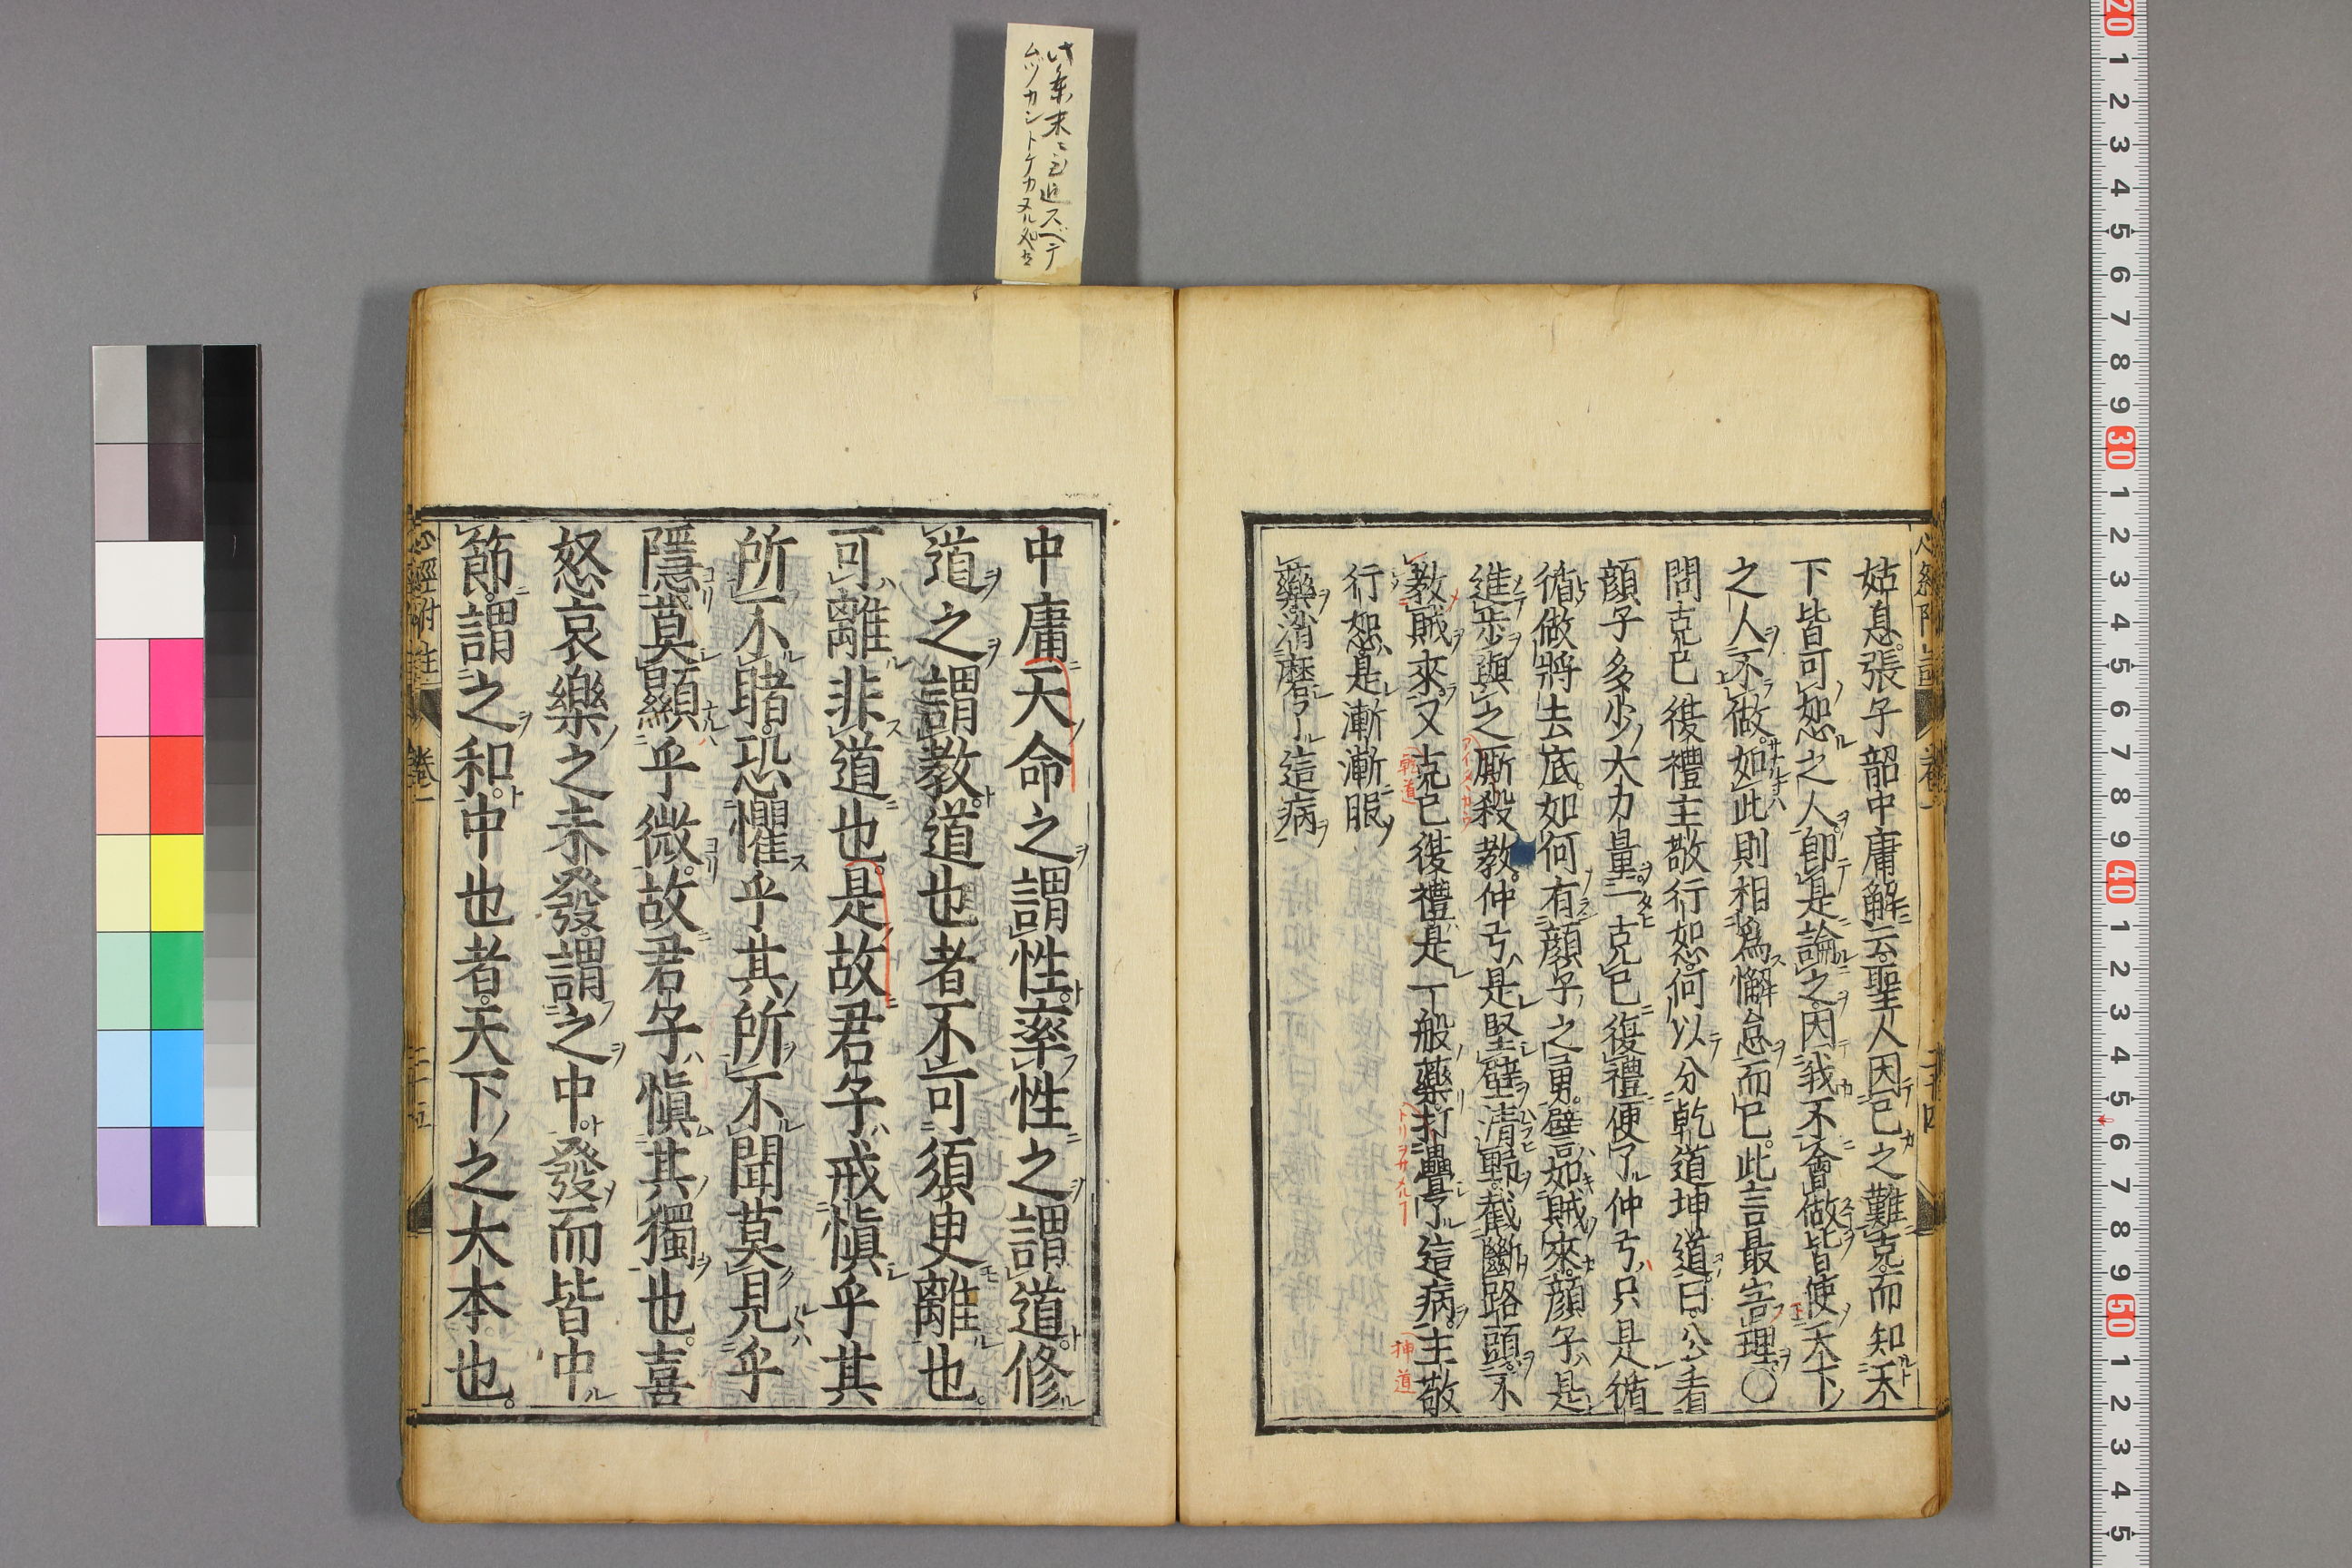 此条末ニ至迄スベテ
ムヅカシトケカヌル処也
姑息張子韶中庸解云聖人因己之難克而知天
下皆可恕之人卽是論之因我不會做皆使天下
之人不做如此則相爲懈怠而已此言最害理○
問克己復禮主敬行恕何以分乾道坤道曰公看
顔子多少大力量一克己復禮便了仲弓只是循
循做將去底如何有顔子之勇譬如賊來顔子是
進步與之厮殺敎仲弓是堅壁淸野截斷路頭不
敎賊來又克己復禮是一般藥打疊了這病主敬
行恕是漸漸服
藥消磨了這病
乾道
坤道
トリヲサメル
中庸天命之謂性率性之謂道修
道之謂敎道也者不可須臾離也
可離非道也是故君子戒愼乎其
所不睹恐懼乎其所不聞莫見乎
隱莫顯乎微故君子愼其獨也喜
怒哀樂之未發謂之中發而皆中
節謂之和中也者天下之大本也
心經附註 卷一 二十五